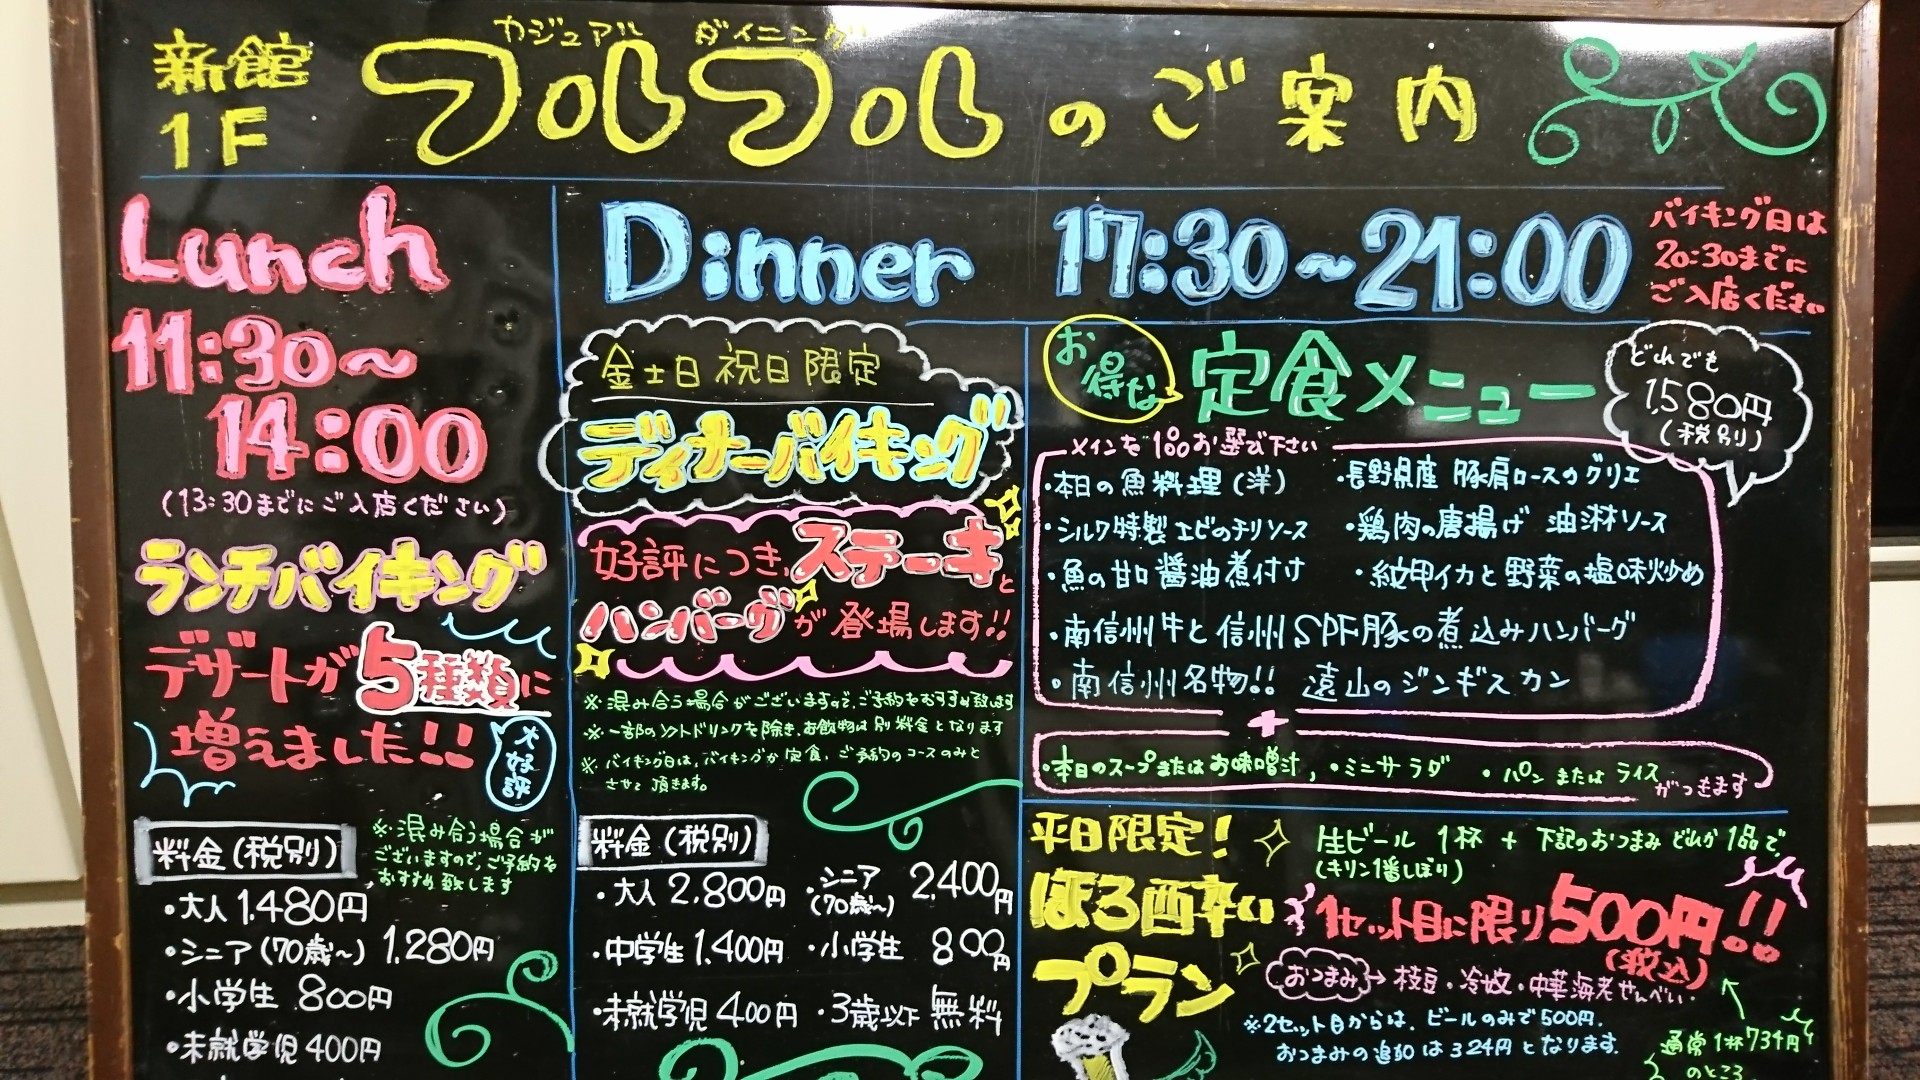 新館
1F
カジュアル ダイニング
フルフルのご案内
Lunch
11:30～
14:00
(13:30までにご入店ください)
ランチバイキング
デザートが5種類に
増えました!!
大好評
料金(税別)
※混み合う場合が
ございますので、ご予約を
おすすめ致します
・大人 1,480円
・シニア(70歳～) 1,280円
・小学生 800円
・未就学児 400円
Dinner 17:30～21:00
バイキング日は
20:30までに
ご入店ください
金土日祝日限定
ディナーバイキング
好評につき、ステーキと
ハンバーグが登場します!!
※混み合う場合がございますので、ご予約をおすすめ致します
※一部のソフトドリンクを除き、お飲物は別料金となります
※バイキング日は、バイキングか定食、ご予約のコースのみと
させて頂きます。
料金(税別)
・大人 2,800円 ・シニア(70歳～) 2,400円
・中学生 1,400円 ・小学生 800円
・未就学児 400円 ・3歳以下 無料
お得な 定食メニュー
どれでも
1,580円
(税別)
メインを1品お選び下さい
・本日の魚料理(洋) ・長野県産 豚肩ロースのグリエ
・シルク特製 エビのチリソース ・鶏肉の唐揚げ 油淋ソース
・魚の甘口醤油煮付け ・紋甲イカと野菜の塩味炒め
・南信州牛と信州SPF豚の煮込みハンバーグ
・南信州名物!! 遠山のジンギスカン
+
・本日のスープまたはお味噌汁, ・ミニサラダ ・パン または ライス がつきます
平日限定!
ほろ酔い
プラン
生ビール 1杯 + 下記のおつまみ どれか1品で、
(キリン1番しぼり)
1セット目に限り500円!!
(税込)
おつまみ→枝豆・冷奴・中華海老せんべい.
※2セット目からは、ビールのみで500円.
おつまみの追加は324円となります.
通常1杯734円
のところ